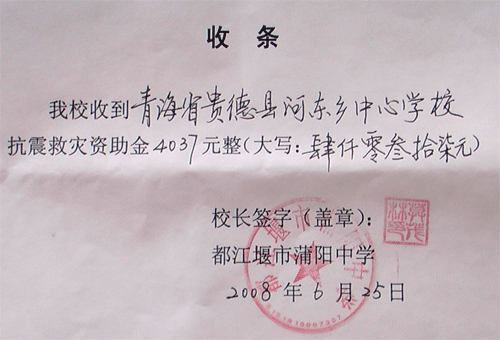 收条
我校收到青海省贵德县河东乡中心学校
抗震救灾资助金4037元整(大写:肆仟零叁拾柒元)
校长签字(盖章):
都江堰市蒲阳中学
2008年6月25日